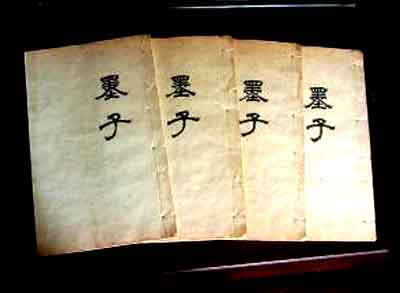 墨子
墨子
墨子
墨子